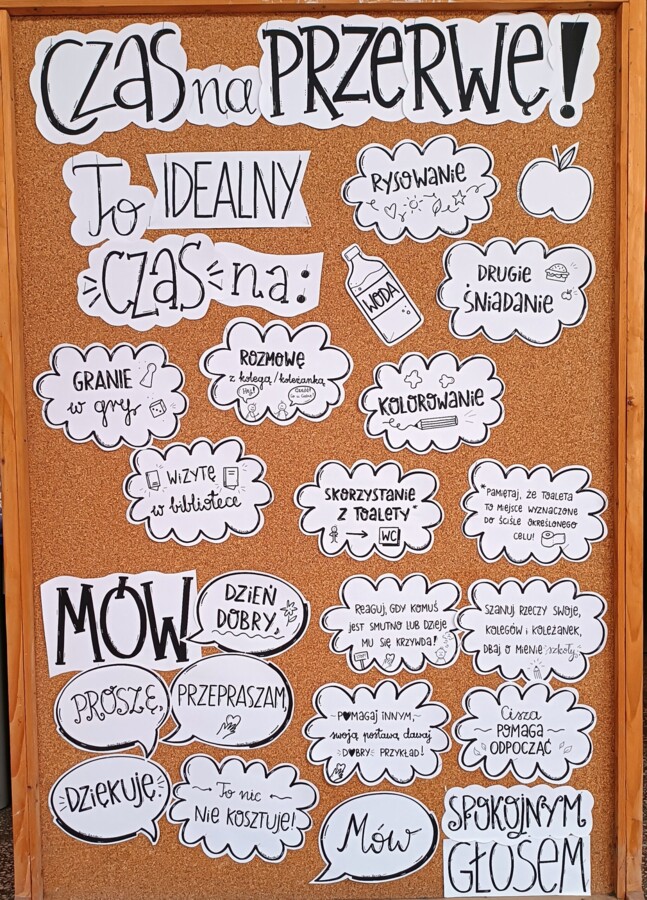 CZAS na PRZERWĘ!
To IDEALNY
CZAS na:
RYSOWANIE
WODA
DRUGIE
ŚNIADANIE
GRANIE
w gry
ROZMOWĘ
z kolegą/koleżanką
KOLOROWANIE
WIZYTĘ
w bibliotece
SKORZYSTANIE
Z TOALETY*
WC
*PAMIĘTAJ, ŻE TOALETA
TO MIEJSCE WYZNACZONE
DO ŚCIŚLE OKREŚLONEGO
CELU!
MÓW
DZIEŃ
DOBRY,
PROSZĘ,
PRZEPRASZAM,
DZIĘKUJĘ.
To nic
NIE KOSZTUJE!
REAGUJ, GDY KOMUŚ
JEST SMUTNO LUB DZIEJE
MU SIĘ KRZYWDA!
SZANUJ RZECZY SWOJE,
KOLEGÓW i KOLEŻANEK,
DBAJ O MIENIE szkoły
POMAGAJ INNYM,
swoją postawą dawaj
DOBRY PRZYKŁAD!
Cisza
POMAGA
ODPOCZĄĆ
Mów
SPOKOJNYM
GŁOSEM